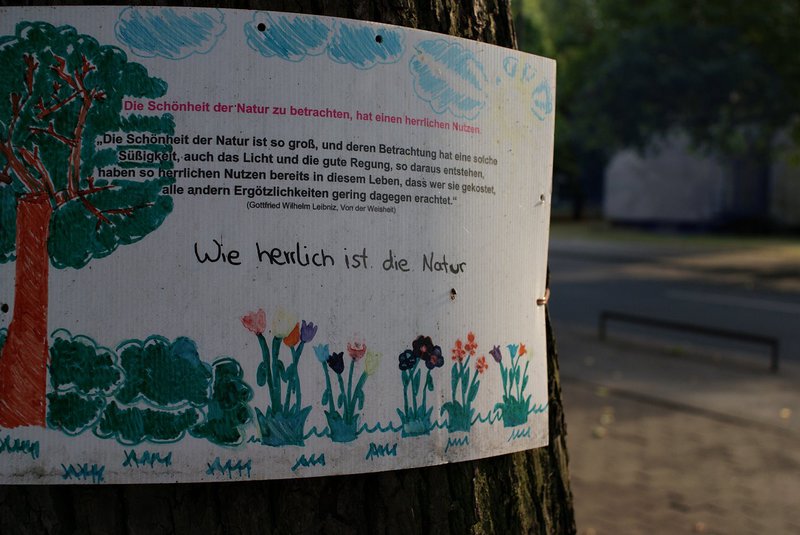 Die Schönheit der Natur zu betrachten, hat einen herrlichen Nutzen.
„Die Schönheit der Natur ist so groß, und deren Betrachtung hat eine solche
Süßigkeit, auch das Licht und die gute Regung, so daraus entstehen,
haben so herrlichen Nutzen bereits in diesem Leben, dass wer sie gekostet,
alle andern Ergötzlichkeiten gering dagegen erachtet.“
(Gottfried Wilhelm Leibniz, Von der Weisheit)
Wie herrlich ist die Natur